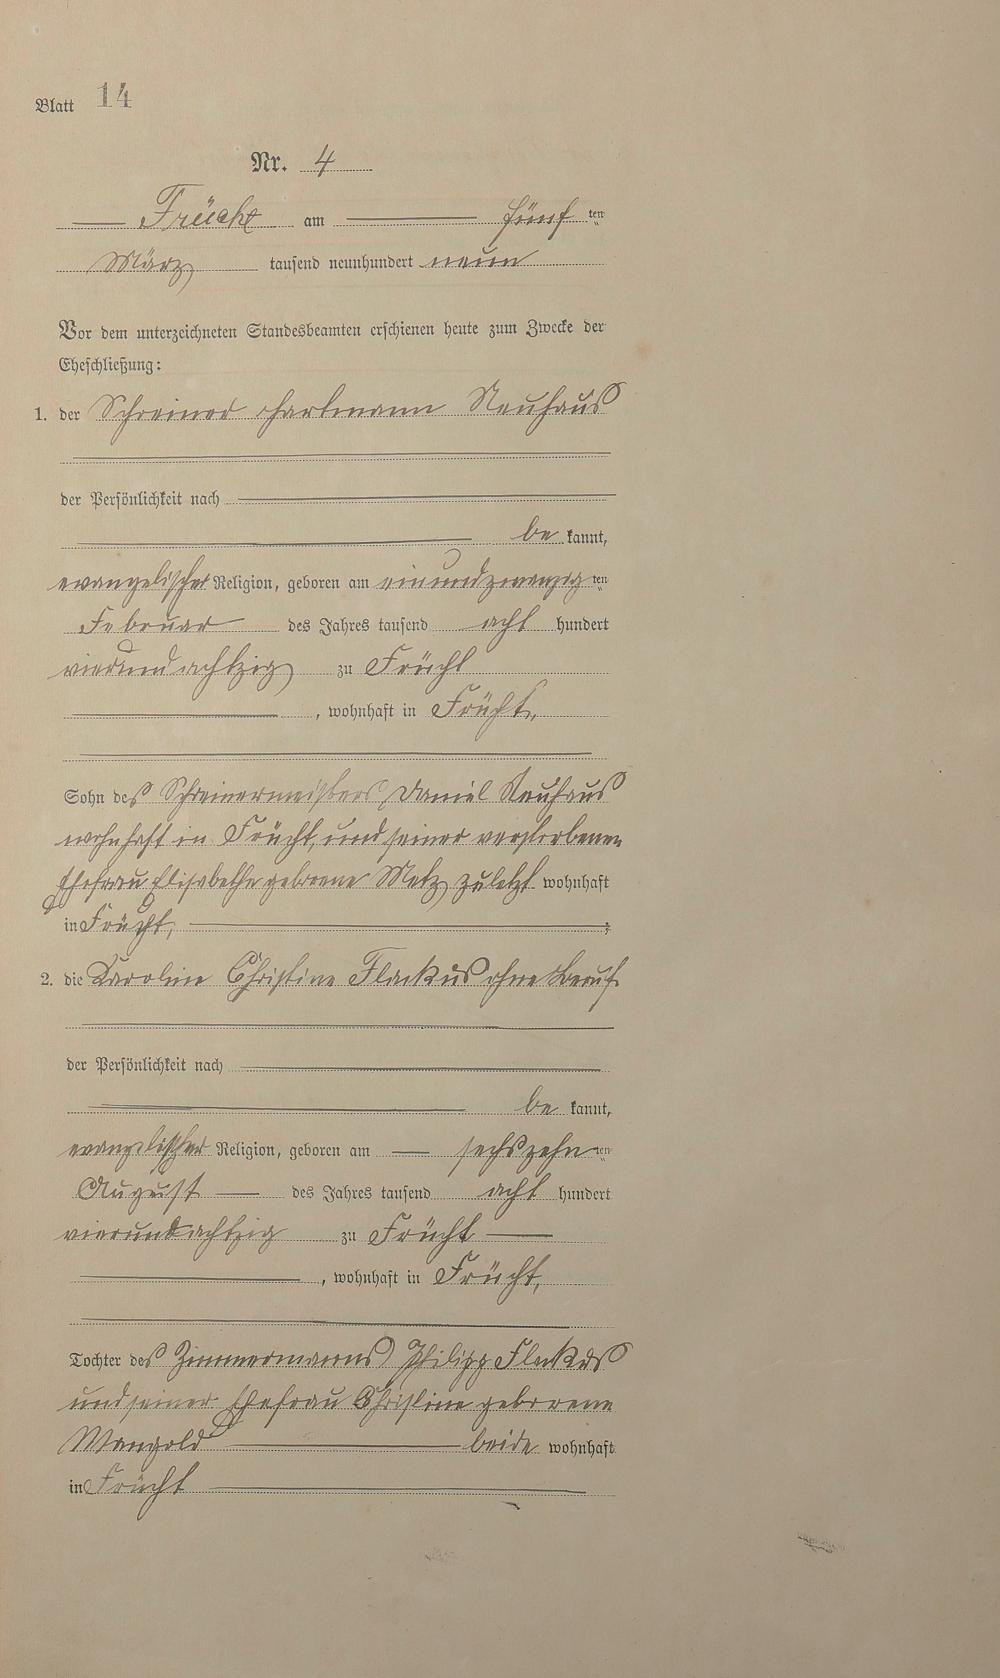 Blatt 14
Nr. 4
Frücht am fünf ten
März tausend neunhundert neun
Vor dem unterzeichneten Standesbeamten erschienen heute zum Zwecke der
Eheschließung:
1. der Schreiner Hartmann Neuhaus
der Persönlichkeit nach
be kannt,
evangelischer Religion, geboren am einundzwanzig ten
Februar des Jahres tausend acht hundert
vierundachtzig zu Frücht
, wohnhaft in Frücht,
Sohn des Schreinermeisters Daniel Neuhaus
wohnhaft in Frücht, und seiner verstorbenen
Ehefrau Elisabethe geborene Metz zuletzt wohnhaft
in Frücht, ;
2. die Karoline Christine Flackus ohne Beruf
der Persönlichkeit nach
be kannt,
evangelischer Religion, geboren am sechszehn ten
August des Jahres tausend acht hundert
vierundachtzig zu Frücht
, wohnhaft in Frücht,
Tochter des Zimmermanns Philipp Flackus
und seiner Ehefrau Christine geborene
Mangold beide wohnhaft
in Frücht